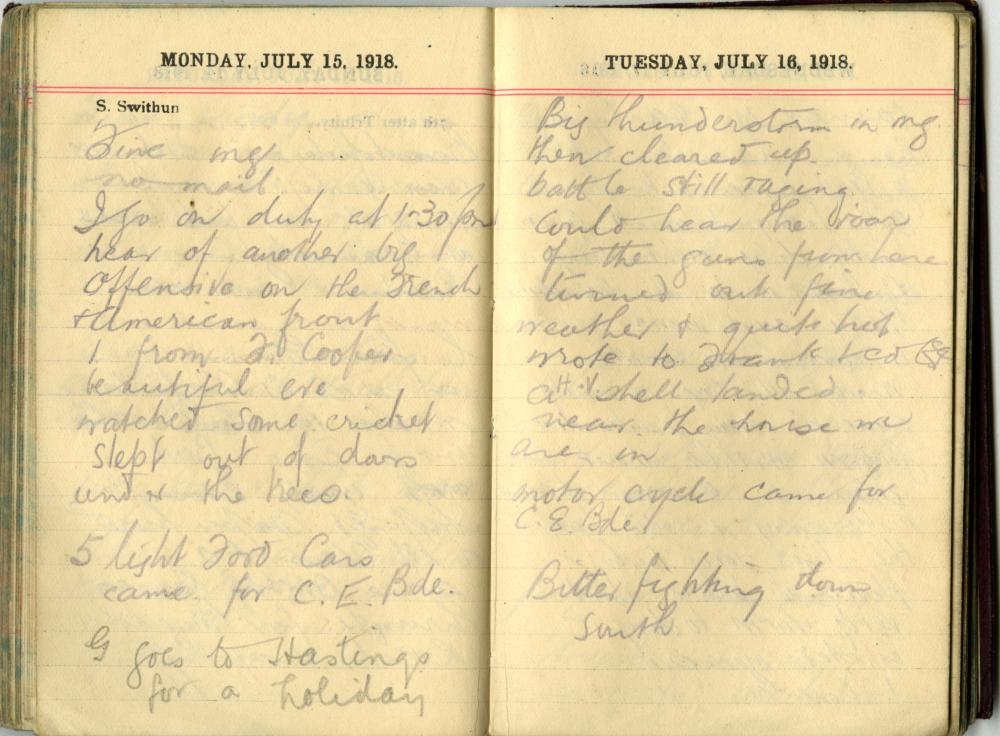 MONDAY, JULY 15, 1918.
S. Swithun
Fine mg
no mail
I go on duty at 1-30 pm
hear of another big
offensive on the French
+ American front
1 from F. Cooper
beautiful eve
watched some cricket
slept out of doors
under the trees.
5 light Ford Cars
came for C. E. Bde.
G goes to Hastings
for a holiday
TUESDAY, JULY 16, 1918.
Big thunderstorm in mg.
then cleared up.
battle still raging.
could hear the roar
of the guns from here
turned out fine
weather & quite hot
wrote to Frank
a H.V. shell landed
near the house we
are in
motor cycle came for
C. E. Bde
Bitter fighting down
South